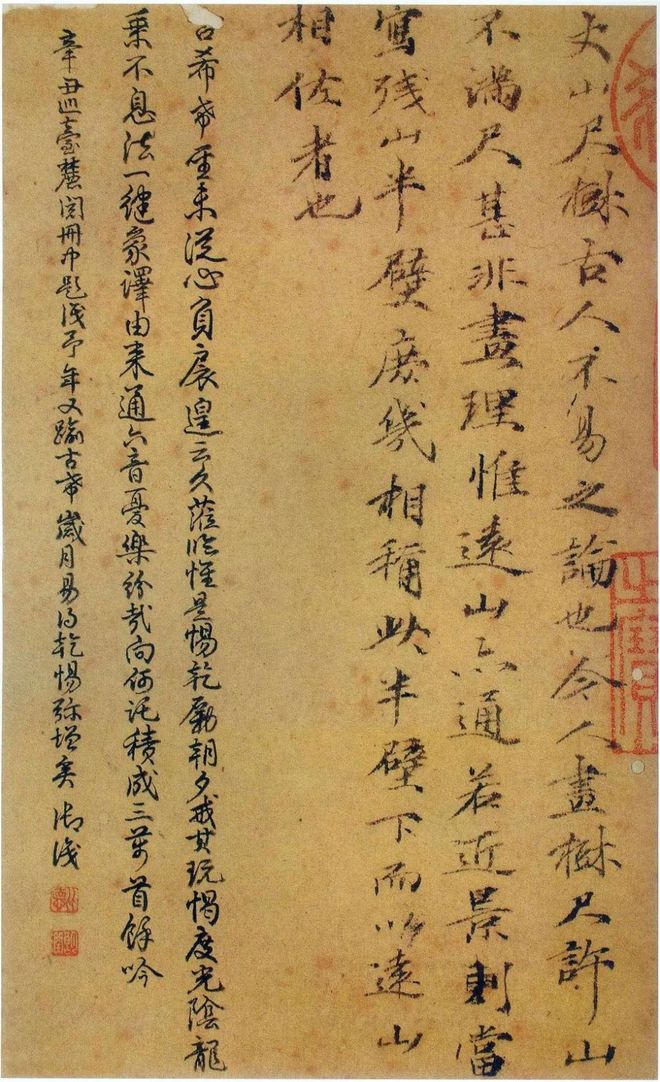 丈山尺樹古人不易之論也今人畫樹尺許山
不滿尺甚非畫理惟遠山亦通若近景則當
寫殘山半壁庶幾相稱此半壁下而以遠山
相佐者也
古希希至耒從心負扆遑云久蒞臨惟是惕乾勵朝夕戒其玩愒度光陰龍
乘不息法一健象譯由來通六音憂樂紛哉向何託積成三萬首餘吟
辛丑巡臺麓閱冊中題識予年又踰古希歲月易乾惕弥增矣御識